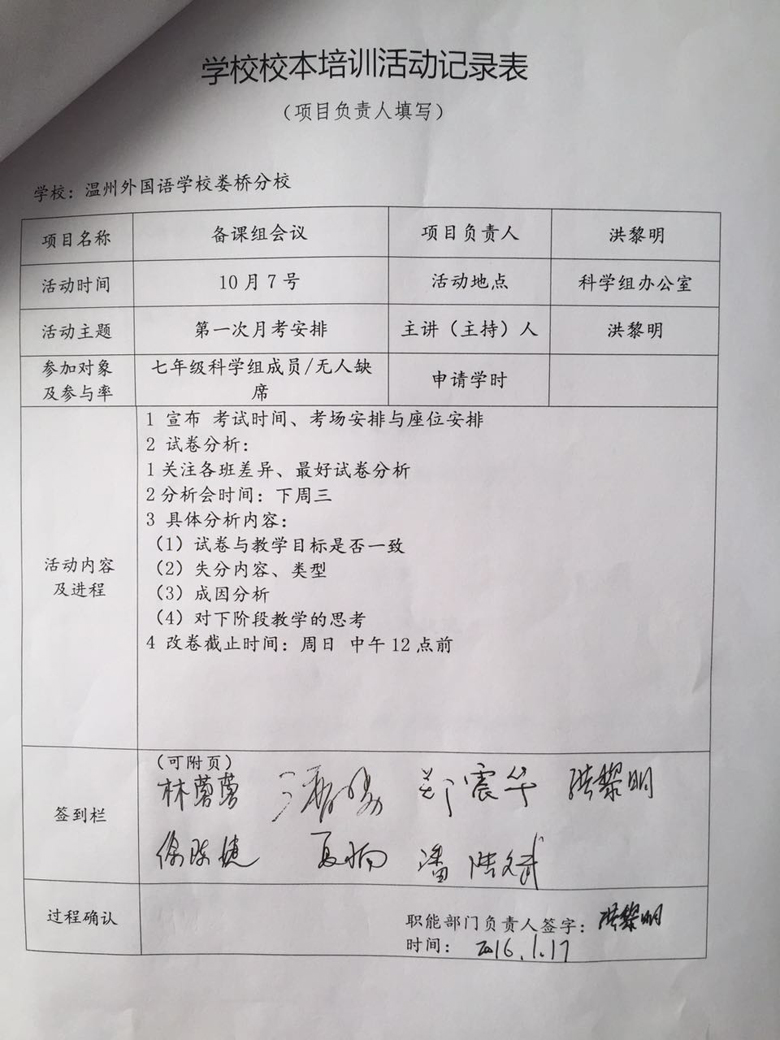 学校校本培训活动记录表
（项目负责人填写）
学校：温州外国语学校娄桥分校
项目名称 备课组会议 项目负责人 洪黎明
活动时间 10月7号 活动地点 科学组办公室
活动主题 第一次月考安排 主讲（主持）人 洪黎明
参加对象及参与率 七年级科学组成员/无人缺席 申请学时
活动内容及进程
1 宣布 考试时间、考场安排与座位安排
2 试卷分析：
1关注各班差异、最好试卷分析
2分析会时间：下周三
3 具体分析内容：
（1）试卷与教学目标是否一致
（2）失分内容、类型
（3）成因分析
（4）对下阶段教学的思考
4 改卷截止时间：周日 中午12点前
签到栏
（可附页）
郑震华 洪黎明
过程确认
职能部门负责人签字：洪黎明
时间：2016.1.17